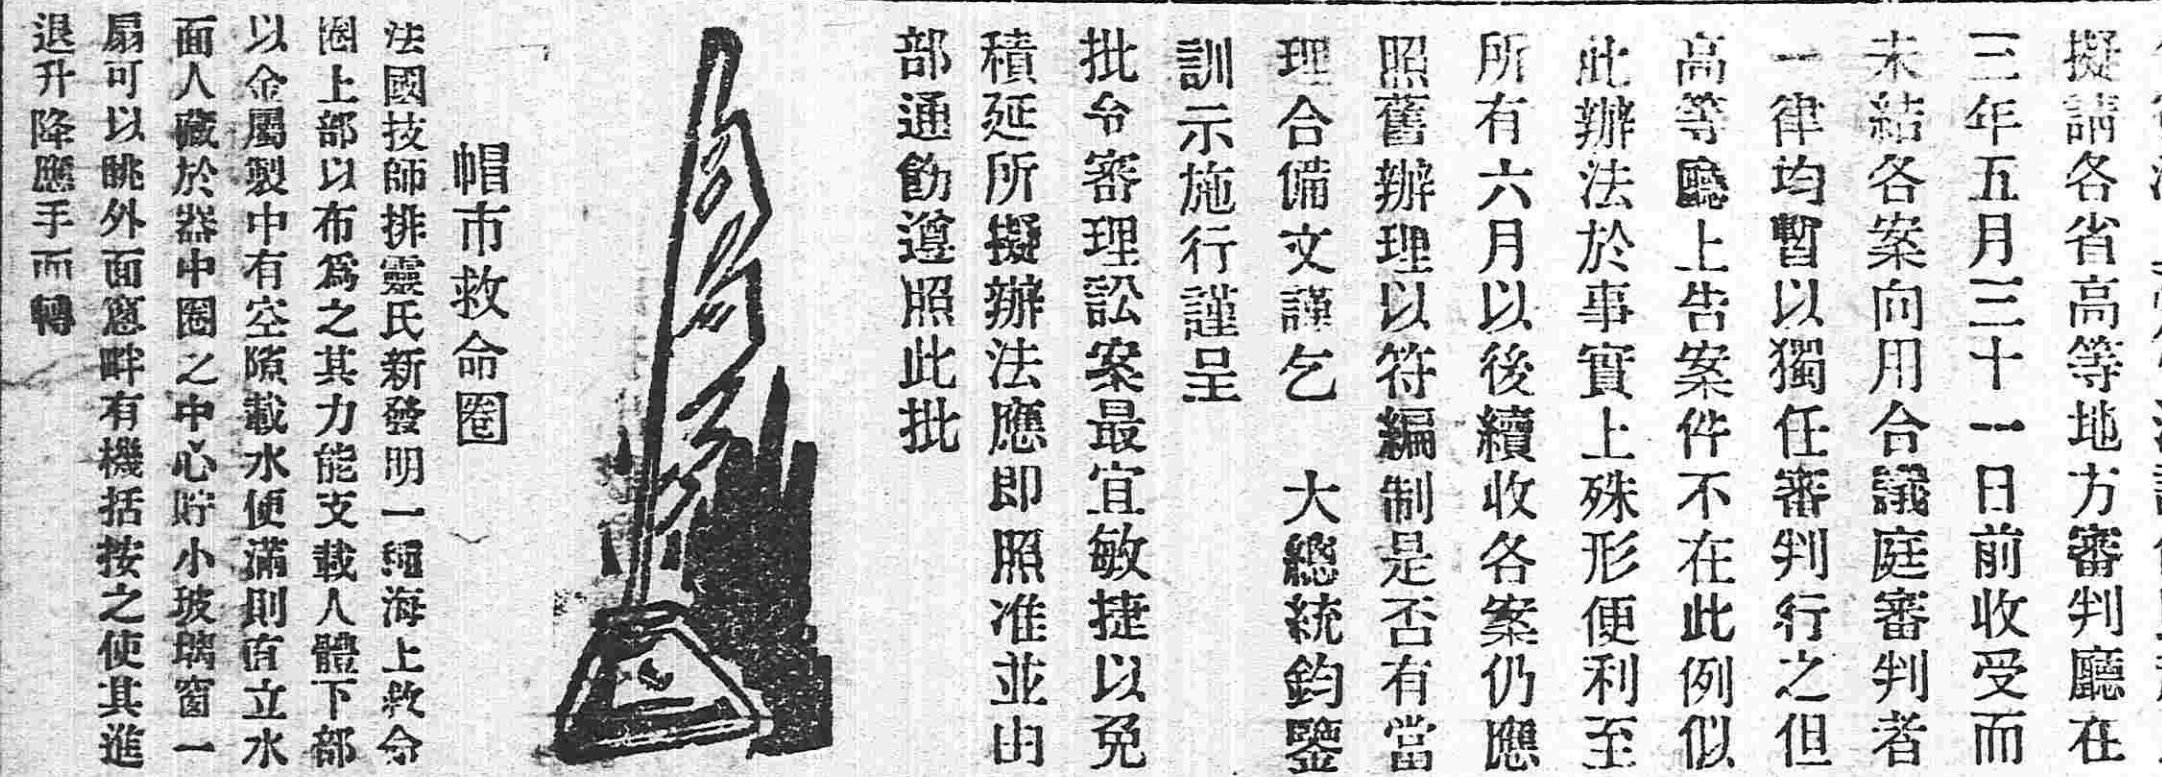 擬請各省高等地方審判廳在
三年五月三十一日前收受而
未結各案向用合議庭審判者
一律均暫以獨任審判行之但
高等廳上告案件不在此例似
此辦法於事實上殊形便利至
所有六月以後續收各案仍應
照舊辦理以符編制是否有當
理合備文謹乞 大總統鈞鑒
訓示施行謹呈
批令審理訟案最宜敏捷以免
積延所擬辦法應即照准並由
部通飭遵照此批
帽市救命圈
法國技師排靈氏新發明一種海上救命
圈上部以布爲之其力能支載人體下部
以金屬製中有空隙載水便滿則直立水
面人藏於器中圈之中心貯小玻璃窗一
扇可以眺外面窗畔有機括按之使其進
退升降應手而轉